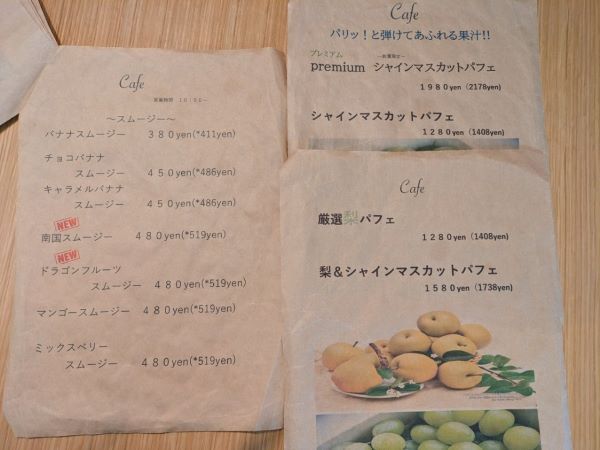 Cafe
～スムージー～
バナナスムージー ３８０yen(*411yen)
チョコバナナ
スムージー ４５０yen(*486yen)
キャラメルバナナ
スムージー ４５０yen(*486yen)
NEW
南国スムージー ４８０yen(*519yen)
NEW
ドラゴンフルーツ
スムージー ４８０yen(*519yen)
マンゴースムージー ４８０yen(*519yen)
ミックスベリー
スムージー ４８０yen(*519yen)
Cafe
パリッ！と弾けてあふれる果汁!!
プレミアム
premium シャインマスカットパフェ
１９８０yen（2178yen）
シャインマスカットパフェ
１２８０yen（1408yen）
Cafe
厳選梨パフェ
１２８０yen（1408yen）
梨＆シャインマスカットパフェ
１５８０yen（1738yen）